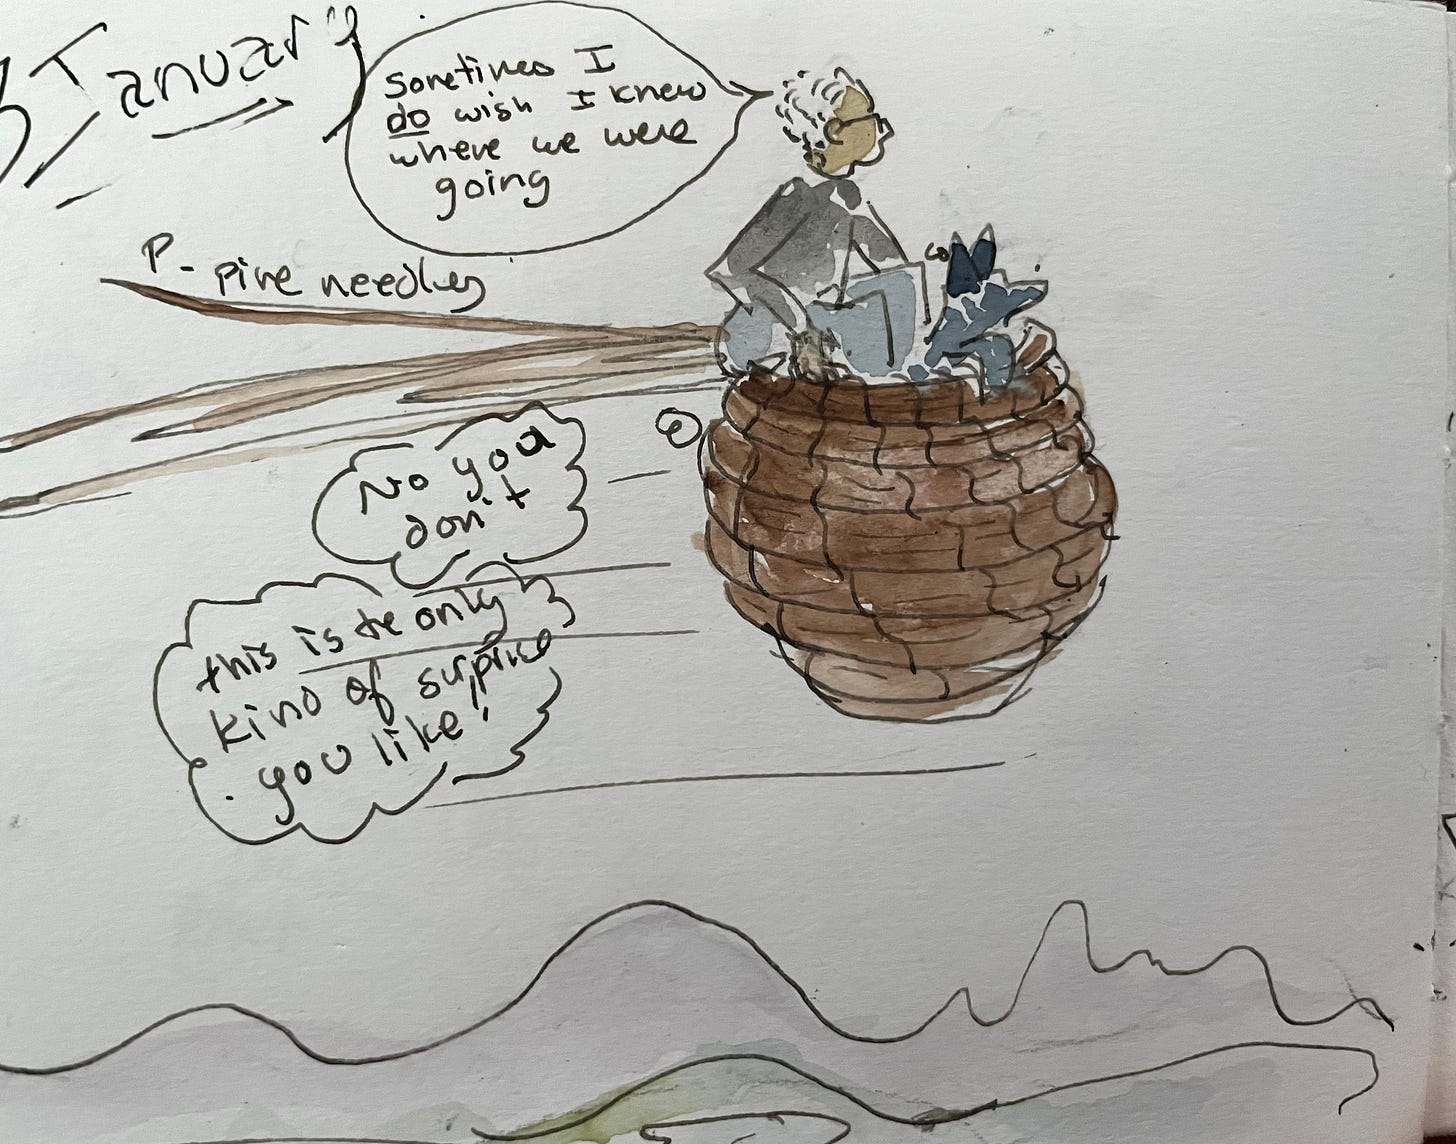 3 January
Sometimes I
do wish I knew
where we were
going
P- pine needles
No you
don't
this is the only
kind of surprise
you like!